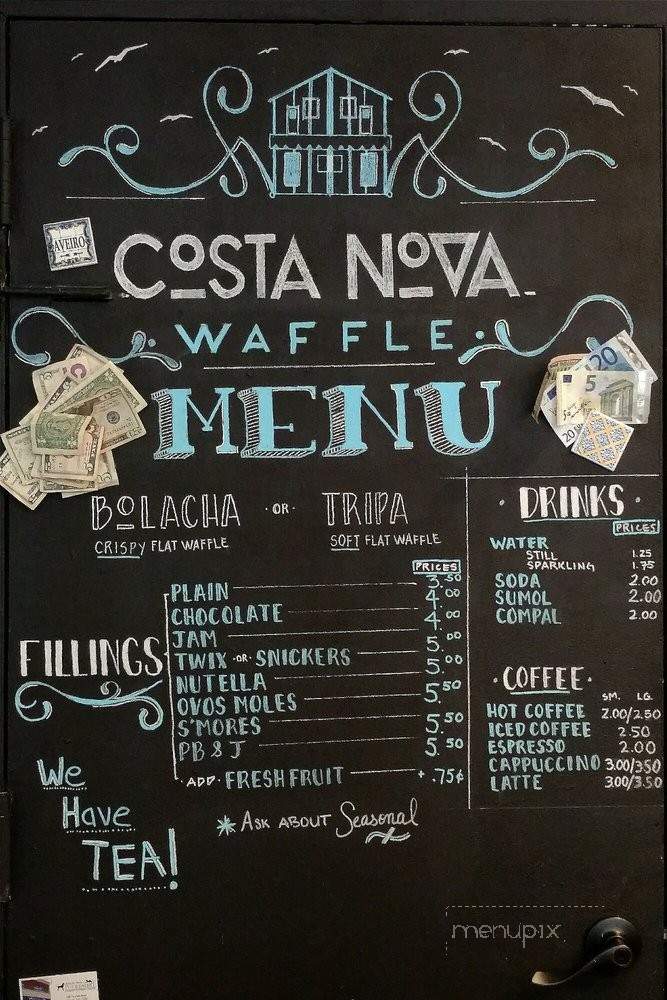 AVEIRO
COSTA NOVA
WAFFLE
MENU
BOLACHA - OR - TRIPA
CRISPY FLAT WAFFLE
SOFT FLAT WAFFLE
PRICES
FILLINGS
PLAIN 3.50
CHOCOLATE 4.00
JAM 4.00
TWIX - OR - SNICKERS 5.00
NUTELLA 5.00
OVOS MOLES 5.50
S'MORES 5.50
PB & J 5.50
- ADD - FRESH FRUIT + .75¢
* ASK ABOUT Seasonal
We
Have
TEA!
· DRINKS ·
PRICES
WATER
STILL 1.25
SPARKLING 1.75
SODA 2.00
SUMOL 2.00
COMPAL 2.00
· COFFEE ·
SM. LG.
HOT COFFEE 2.00/2.50
ICED COFFEE 2.50
ESPRESSO 2.00
CAPPUCCINO 3.00/3.50
LATTE 3.00/3.50
20
5
20
menupix